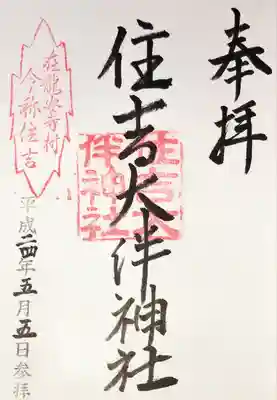 奉拝
住吉大伴神社
住吉大
伴神社
在龍安寺村
今ノ称住吉
平成二四年五月五日参拝